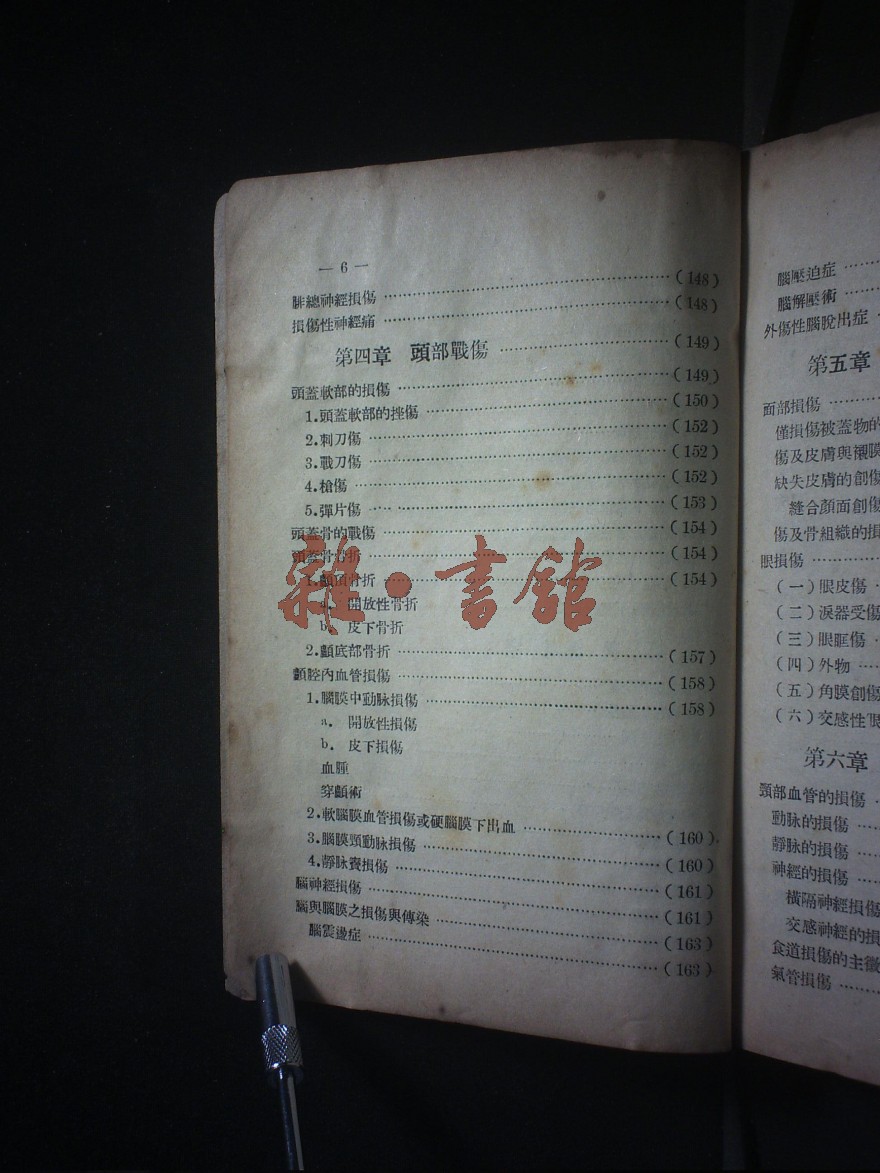 — 6 —
腓總神經損傷 ……(148)
損傷性神經痛 ……(148)
第四章 頭部戰傷 ……(149)
頭蓋軟部的損傷 ……(149)
1.頭蓋軟部的挫傷 ……(150)
2.刺刀傷 ……(152)
3.戰刀傷 ……(152)
4.槍傷 ……(152)
5.彈片傷 ……(153)
頭蓋骨的戰傷 ……(154)
頭蓋骨骨折 ……(154)
1.顱頂骨折 ……(154)
a. 開放性骨折
b. 皮下骨折
2.顱底部骨折 ……(157)
顱腔內血管損傷 ……(158)
1.腦膜中動脉損傷 ……(158)
a. 開放性損傷
b. 皮下損傷
血腫
穿顱術
2.軟腦膜血管損傷或硬腦膜下出血 ……(160)
3.腦膜頸動脉損傷 ……(160)
4.靜脉竇損傷 ……(161)
腦神經損傷 ……(161)
腦與腦膜之損傷與傳染 ……(163)
腦震盪症 ……(163)
雜·書館
腦壓迫症 ……
腦解壓術 ……
外傷性腦脫出症 ……
第五章
面部損傷 ……
僅損傷被蓋物的
傷及皮膚與襯膜
缺失皮膚的創傷
縫合顏面創傷
傷及骨組織的損
眼損傷 ……
(一)眼皮傷 ……
(二)淚器受傷
(三)眼眶傷 ……
(四)外物 ……
(五)角膜創傷
(六)交感性眼
第六章
頸部血管的損傷 ……
動脉的損傷 ……
靜脉的損傷 ……
神經的損傷 ……
橫隔神經損傷
交感神經的損
食道損傷的主徵
氣管損傷 ……